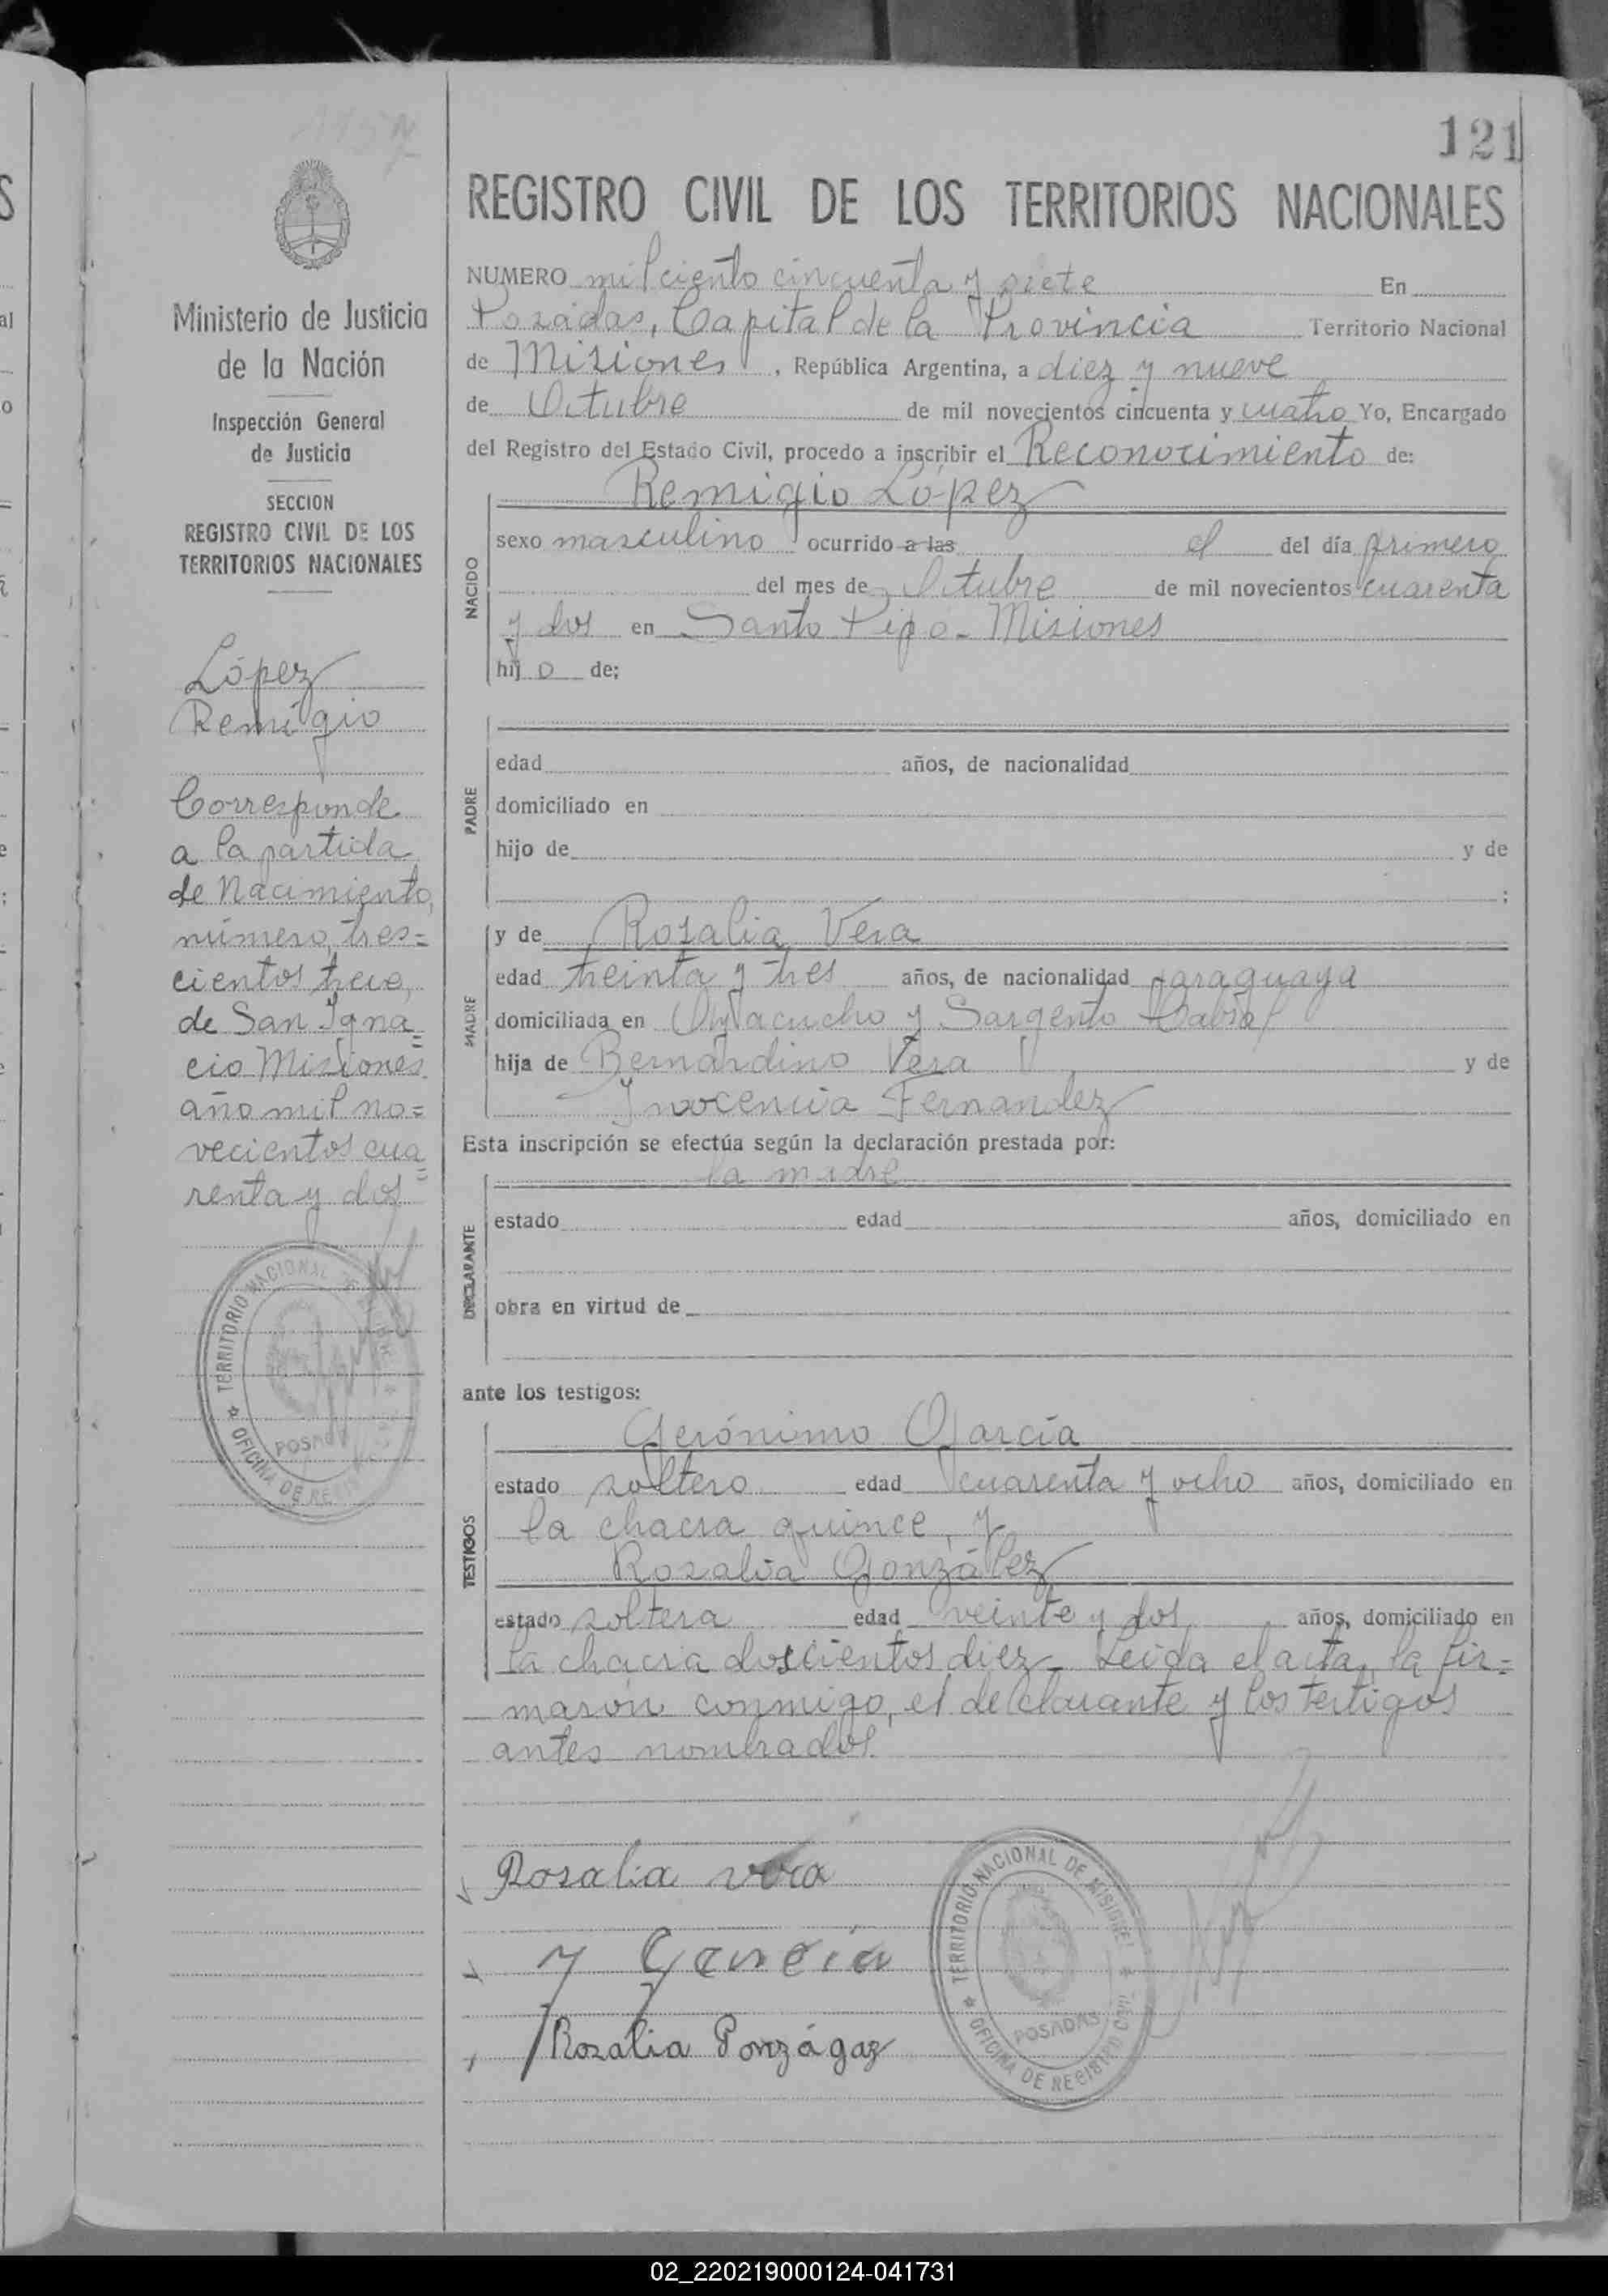 121
REGISTRO CIVIL DE LOS TERRITORIOS NACIONALES
NUMERO mil ciento cincuenta y siete En
Posadas, Capital de la Provincia Territorio Nacional
de Misiones, República Argentina, a diez y nueve
de Octubre de mil novecientos cincuenta y cuatro Yo, Encargado
del Registro del Estado Civil, procedo a inscribir el Reconocimiento de:
Remigio López
NACIDO
sexo masculino ocurrido a las el del día primero
del mes de Octubre de mil novecientos cuarenta
y dos en Santo Pipo - Misiones
hijo de;
PADRE
edad años, de nacionalidad
domiciliado en
hijo de y de
;
MADRE
y de Rosalia Vera
edad treinta y tres años, de nacionalidad paraguaya
domiciliada en Ayacucho y Sargento Cabral
hija de Bernardino Vera y de
Inocencia Fernandez
Esta inscripción se efectúa según la declaración prestada por:
la madre
DECLARANTE
estado edad años, domiciliado en
obra en virtud de
ante los testigos:
TESTIGOS
Gerónimo García
estado soltero edad cuarenta y ocho años, domiciliado en
la chacra quince, y
Rosalia González
estado soltera edad veinte y dos años, domiciliado en
la chacra doscientos diez - Leida el acta, la fir=
maron conmigo, el declarante y los testigos
antes nombrados.
Rosalia vera
y Garcia
Rosalia Gonzágaz
TERRITORIO NACIONAL DE MISIONES
OFICINA DE REGISTRO CIVIL
POSADAS
Ministerio de Justicia
de la Nación
Inspección General
de Justicia
SECCION
REGISTRO CIVIL DE LOS
TERRITORIOS NACIONALES
López
Remigio
Corresponde
a la partida
de Nacimiento,
número, tres=
cientos trece,
de San Igna=
cio Misiones
año mil no=
vecientos cua=
renta y dos
TERRITORIO NACIONAL DE
OFICINA DE
POSADAS
02_220219000124-041731